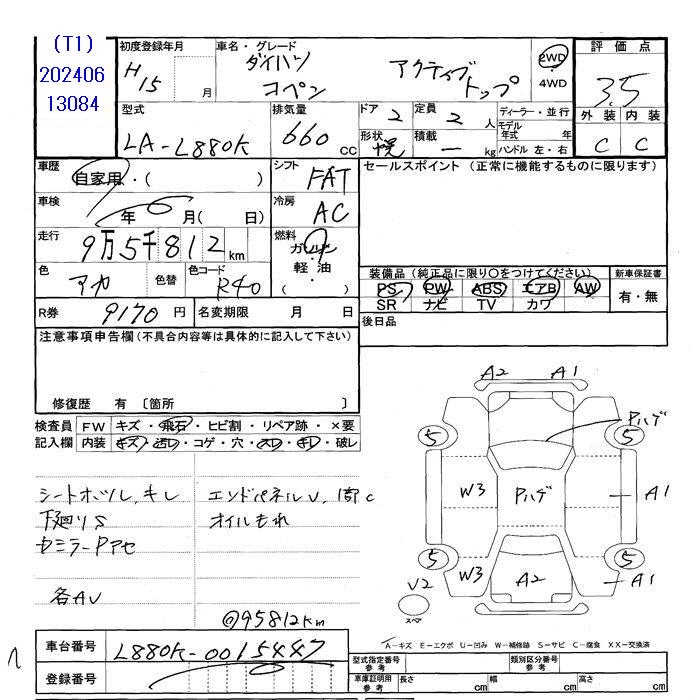 (T1)
202406
13084
初度登録年月
H15
月
車名・グレード
ダイハツ
コペン
アクティブ
トップ
2WD
4WD
評価点
3.5
外装 内装
C C
型式
LA-L880K
排気量
660 cc
ドア
2
形状
幌
定員
2 人
積載
ー kg
ディーラー・並行
モデル
年式 年
ハンドル 左・右
車歴
自家用・( )
シフト
FAT
セールスポイント (正常に機能するものに限ります)
車検
年 月(日)
冷房
AC
走行
9万5千812 km
燃料
ガソリン
軽油
( )
色
アカ
色替
色コード
R40
装備品 (純正品に限り○をつけてください)
PS PW ABS エアB AW
SR ナビ TV カワ
新車保証書
有・無
R券
9170 円
名変期限 月 日
後日品
注意事項申告欄(不具合内容等は具体的に記入して下さい)
修復歴 有 〔箇所 〕
検査員
記入欄
FW キズ・飛石・ヒビ割・リペア跡・×要
内装 キズ・汚レ・コゲ・穴・スレ・キレ・破レ
シートオツレ、キレ
下廻りS
エンドパネルU、1部C
オイルもれ
各AU
@95812km
A2 A1
Pハデ
5 5
W3 Pハデ A1
5 5
W3 A2 A1
U2
スペア
A−キズ E−エクボ U−凹み W−補修跡 S−サビ C−腐食 XX−交換済
車台番号
L880K-0015447
登録番号
型式指定番号
参考
類別区分番号
参考
車庫証明用
参考
長さ cm 幅 cm 高さ cm